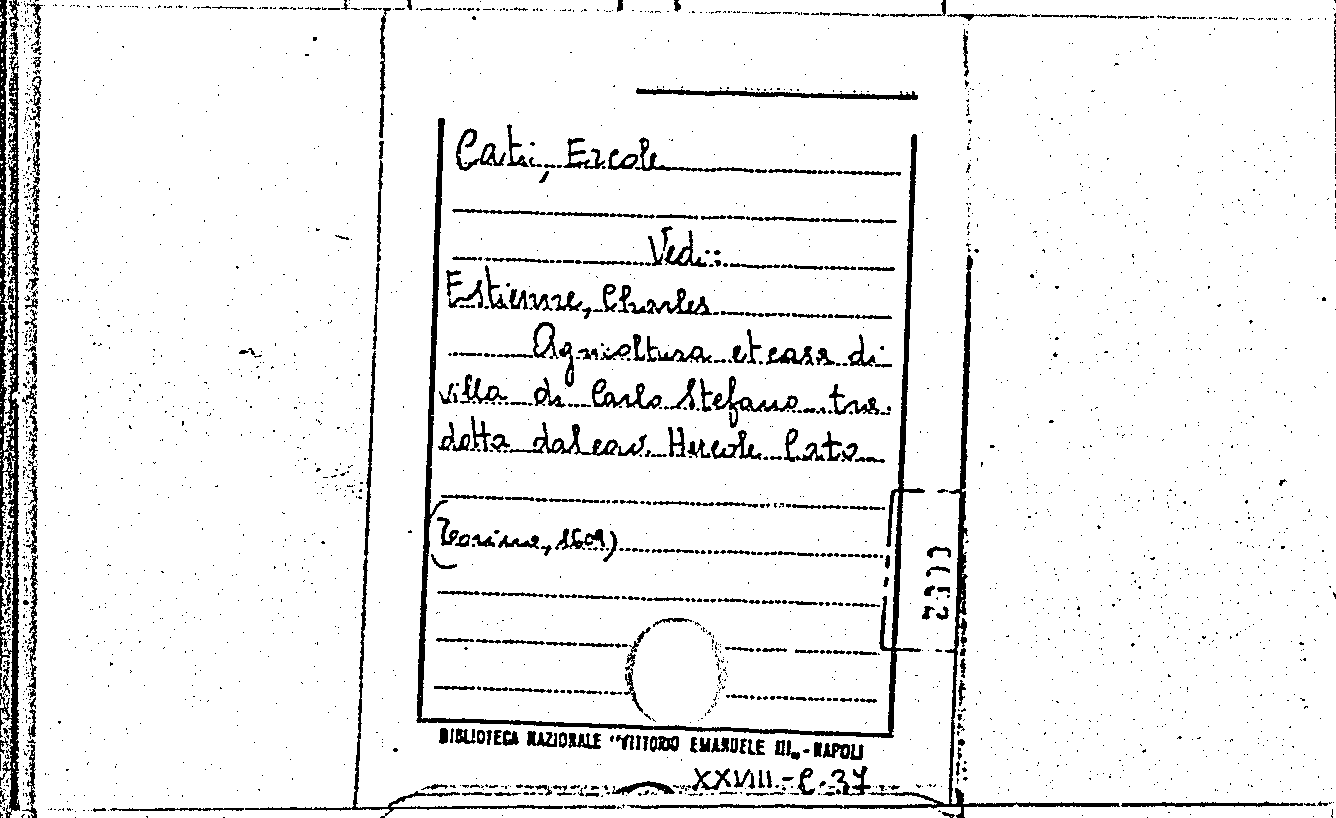 Cati, Ercole
Vedi:
Estienne, Charles
Agricoltura et casa di
villa di Carlo Stefano tra-
dotta dal cav. Hercole Cato
(Torino, 1609)
BIBLIOTECA NAZIONALE "VITTORIO EMANUELE III„ - NAPOLI
XXVIII - C. 37